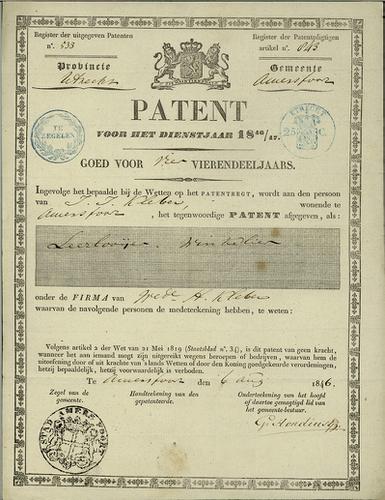 Register der uitgegeven Patenten
n°. 533
Register der Patentpligtigen
artikel n°. 643
Provincie
Utrecht
Gemeente
Amersfoort
PATENT
VOOR HET DIENSTJAAR 18⁴⁶/₄₇.
TE ZEGELEN
UTRECHT
GOED VOOR vier VIERENDEELJAARS.
Ingevolge het bepaalde bij de Wetten op het PATENTREGT, wordt aan den persoon
van J. J. Kleber, wonende te
Amersfoort, het tegenwoordige PATENT afgegeven, als:
Leerlooijer. Winkelier
onder de FIRMA van Wede. H. Kleber
waarvan de navolgende personen de medeteekening hebben, te weten:
Volgens artikel 2 der Wet van 21 Mei 1819 (Staatsblad n°. 34), is dit patent van geen kracht,
wanneer het aan iemand mogt zijn uitgereikt wegens beroepen of bedrijven, waarvan hem de
uitoefening door of uit krachte van 'slands Wetten of door den Koning goedgekeurde verordeningen,
hetzij bepaaldelijk, hetzij voorwaardelijk is verboden.
Te Amersfoort den 6 Aug 1846.
Zegel van de
gemeente.
Handteekening van den
gepatenteerde.
Onderteekening van het hoofd
of daartoe gemagtigd lid van
het gemeente-bestuur.